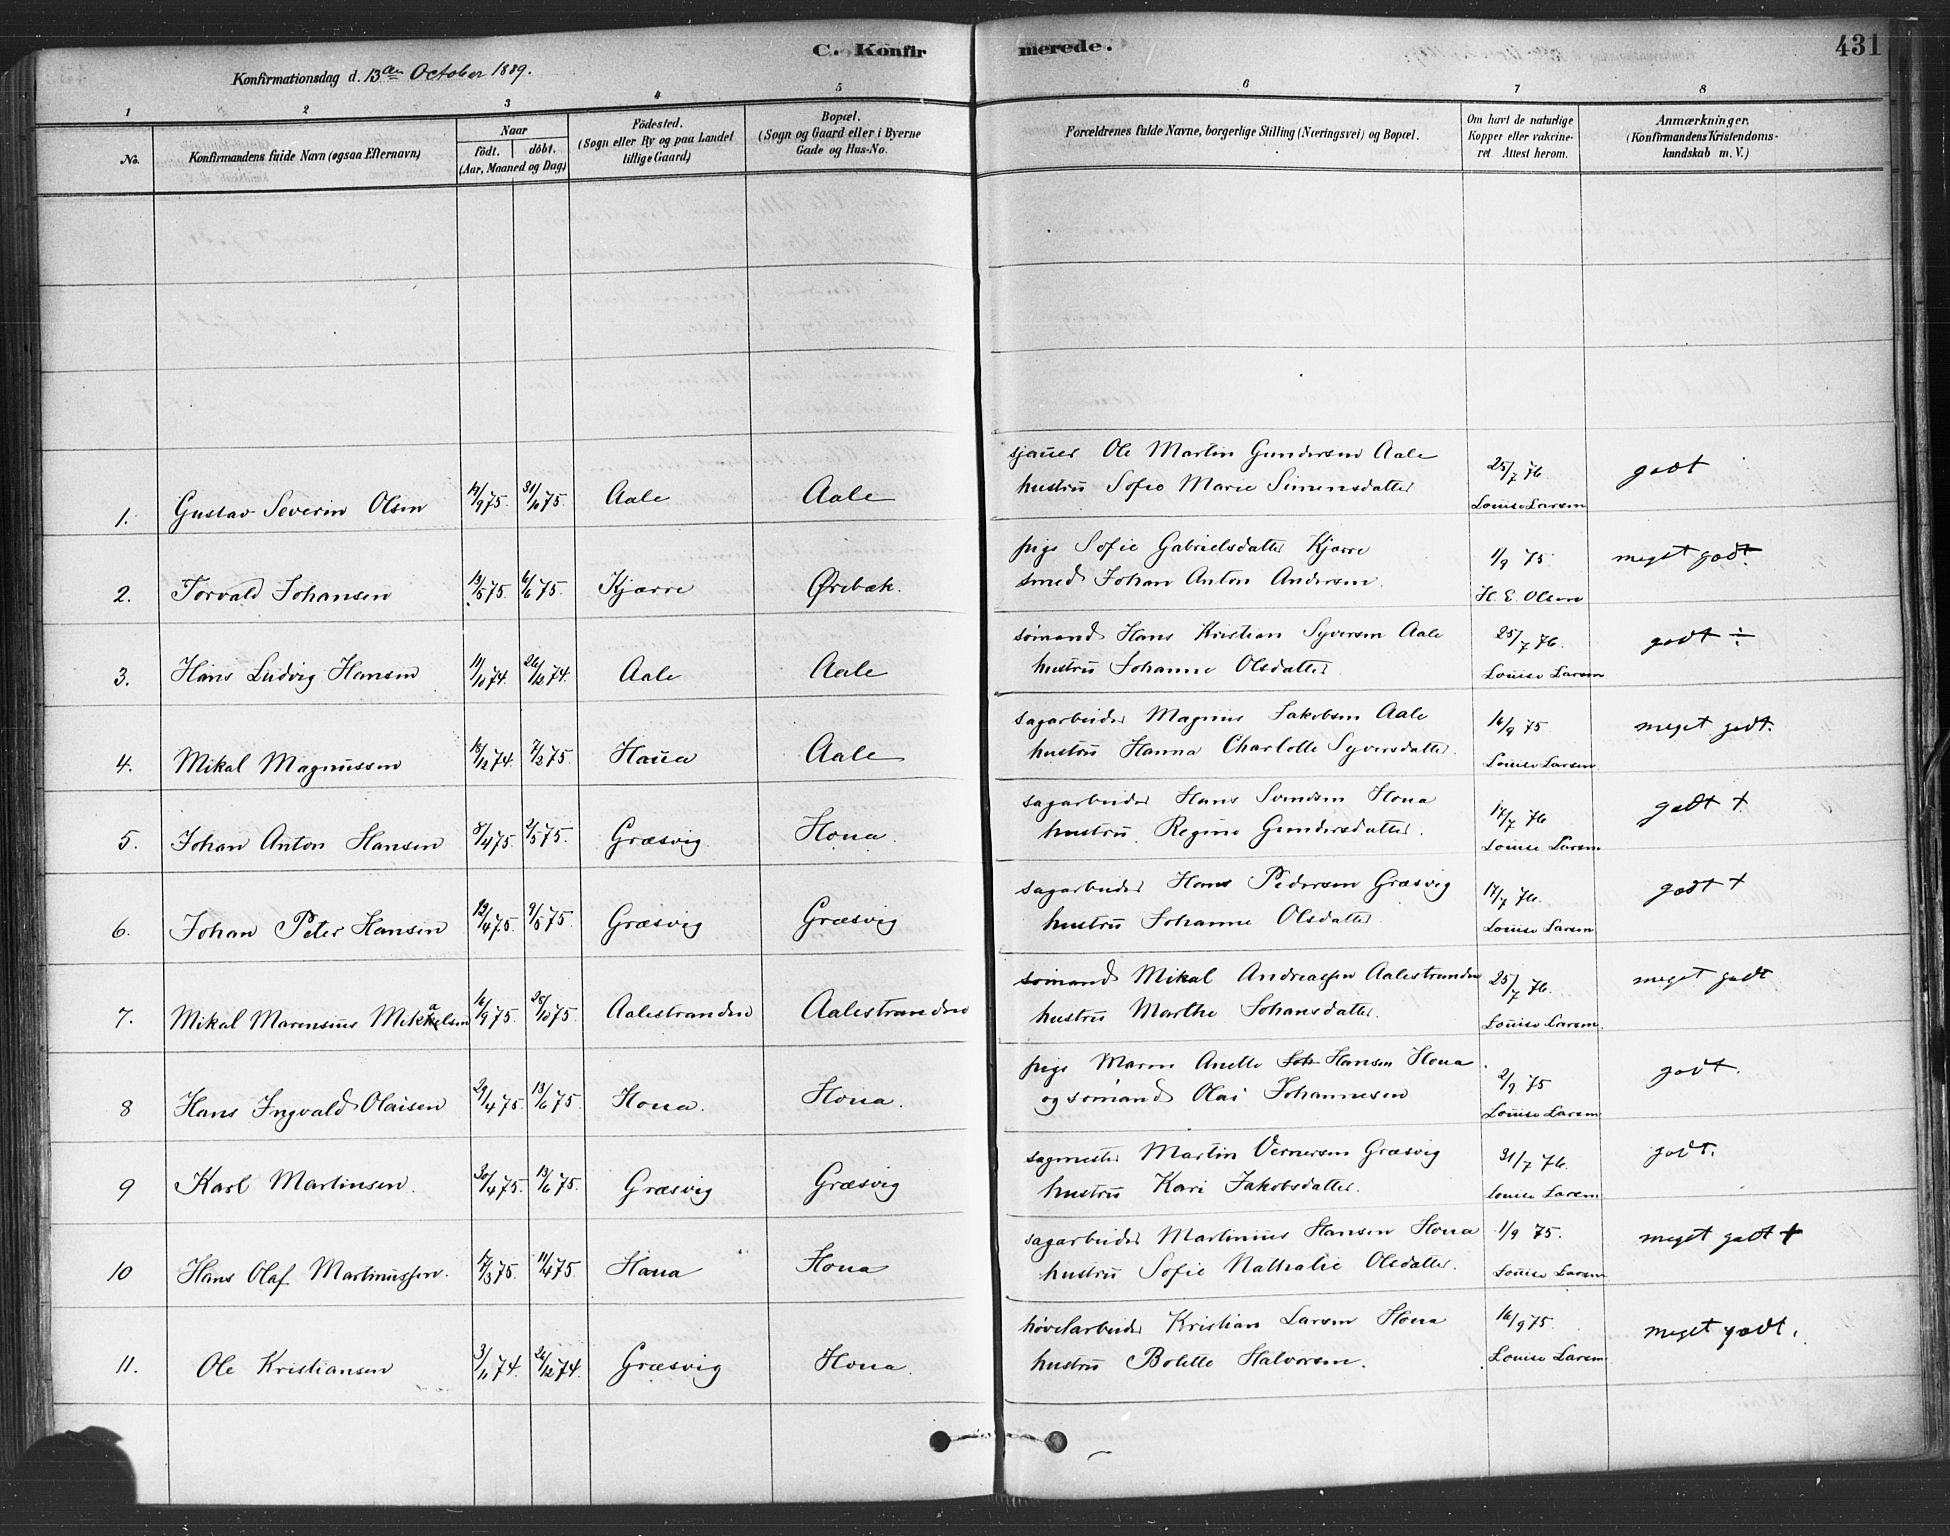 C. Konfirmerede.
431
Konfirmationsdag d. 13de October 1889.
1 2 3 4 5 6 7 8
No.
Konfirmandens fulde Navn (ogsaa Efternavn)
Naar
födt. döbt.
(Aar, Maaned og Dag)
Födested.
(Sogn eller By og paa Landet
tillige Gaard)
Bopæl.
(Sogn og Gaard eller i Byerne
Gade og Hus-No.
Forældrenes fulde Navne, borgerlige Stilling (Næringsvei) og Bopæl.
Om havt de naturlige
Kopper eller vakcine-
ret Attest herom.
Anmærkninger,
(Konfirmandens Kristendoms-
kundskab m. V.)
sjauer Ole Martin Gundersen Aale
hustru Sofie Marie Simensdatter
1. Gustav Severin Olsen 31/10 75. Aale Aale 25/7 76. Louise Larsen godt
pige Sofie Gabrielsdatter Kjærre
smed Johan Anton Andersen.
2. Torvald Johansen 13/5 75. 6/6 75. Kjærre Ørebæk. 1/9 75 H. E. Olsen meget godt.
sømand Hans Kristian Syversen Aale
hustru Johanne Olsdatter.
3. Hans Ludvig Hansen 11/10 74. 26/12 74. Aale Aale 25/7 76. Louise Larsen godt ÷
sagarbeider Magnus Jakobsen Aale
hustru Hanna Charlotte Syversdatter.
4. Mikal Magnussen 18/12 74. 7/2 75. Haua Aale 16/9 75 Louise Larsen. meget godt.
sagarbeider Hans Svendsen Hona
hustru Regine Gundersdatter.
5. Johan Anton Hansen 8/4 75. 2/5 75. Græsvig. Hona. 17/7 76 Louise Larsen godt +
sagarbeider Hans Pedersen Græsvig
hustru Johanne Olsdatter.
6. Johan Peter Hansen 12/4 75. 9/5 75. Græsvig Græsvig 17/7 76. Louise Larsen godt +
sømand Mikal Andreassen Aalestranden
hustru Marthe Johansdatter.
7. Mikal Marensius Mikkelsen 16/9 75. 25/10 75. Aalestranden Aalestranden 25/7 76. Louise Larsen. meget godt
pige Maren Anette Joh Hansen Hona.
og sømand Olai Johannesen
8 Hans Ingvald Olaisen 29/4 75. 13/6 75. Hona. Hona. 2/9 75 Louise Larsen godt.
sagmester Martin Vernersen Græsvig
hustru Kari Jakobsdatter.
9 Karl Martinsen. 30/4 75. 13/6 75. Græsvig Græsvig 31/7 76. Louise Larsen godt.
sagarbeider Martinius Hansen Hona
hustru Sofie Nathalie Olsdatter.
10 Hans Olaf Martinussen. 17/3 75. 11/4 75. Haua Hona 1/9 75. Louise Larsen meget godt +
høvelarbeider Kristian Larsen Hona
hustru Bolette Halvorsen.
11. Ole Kristiansen 3/11 74. 26/12 74. Græsvig Hona. 16/9 75. Louise Larsen meget godt.